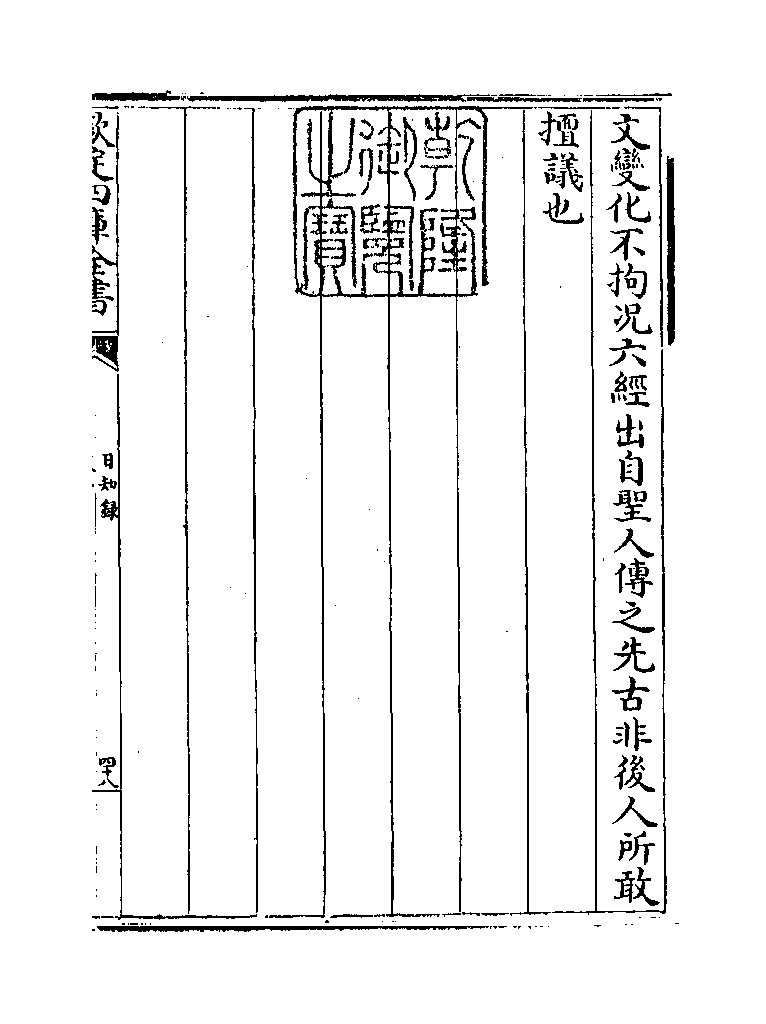 文變化不拘况六經出自聖人傳之先古非後人所敢
擅議也
乾隆
御覽
之寶
欽定四庫全書
日知録
四十八